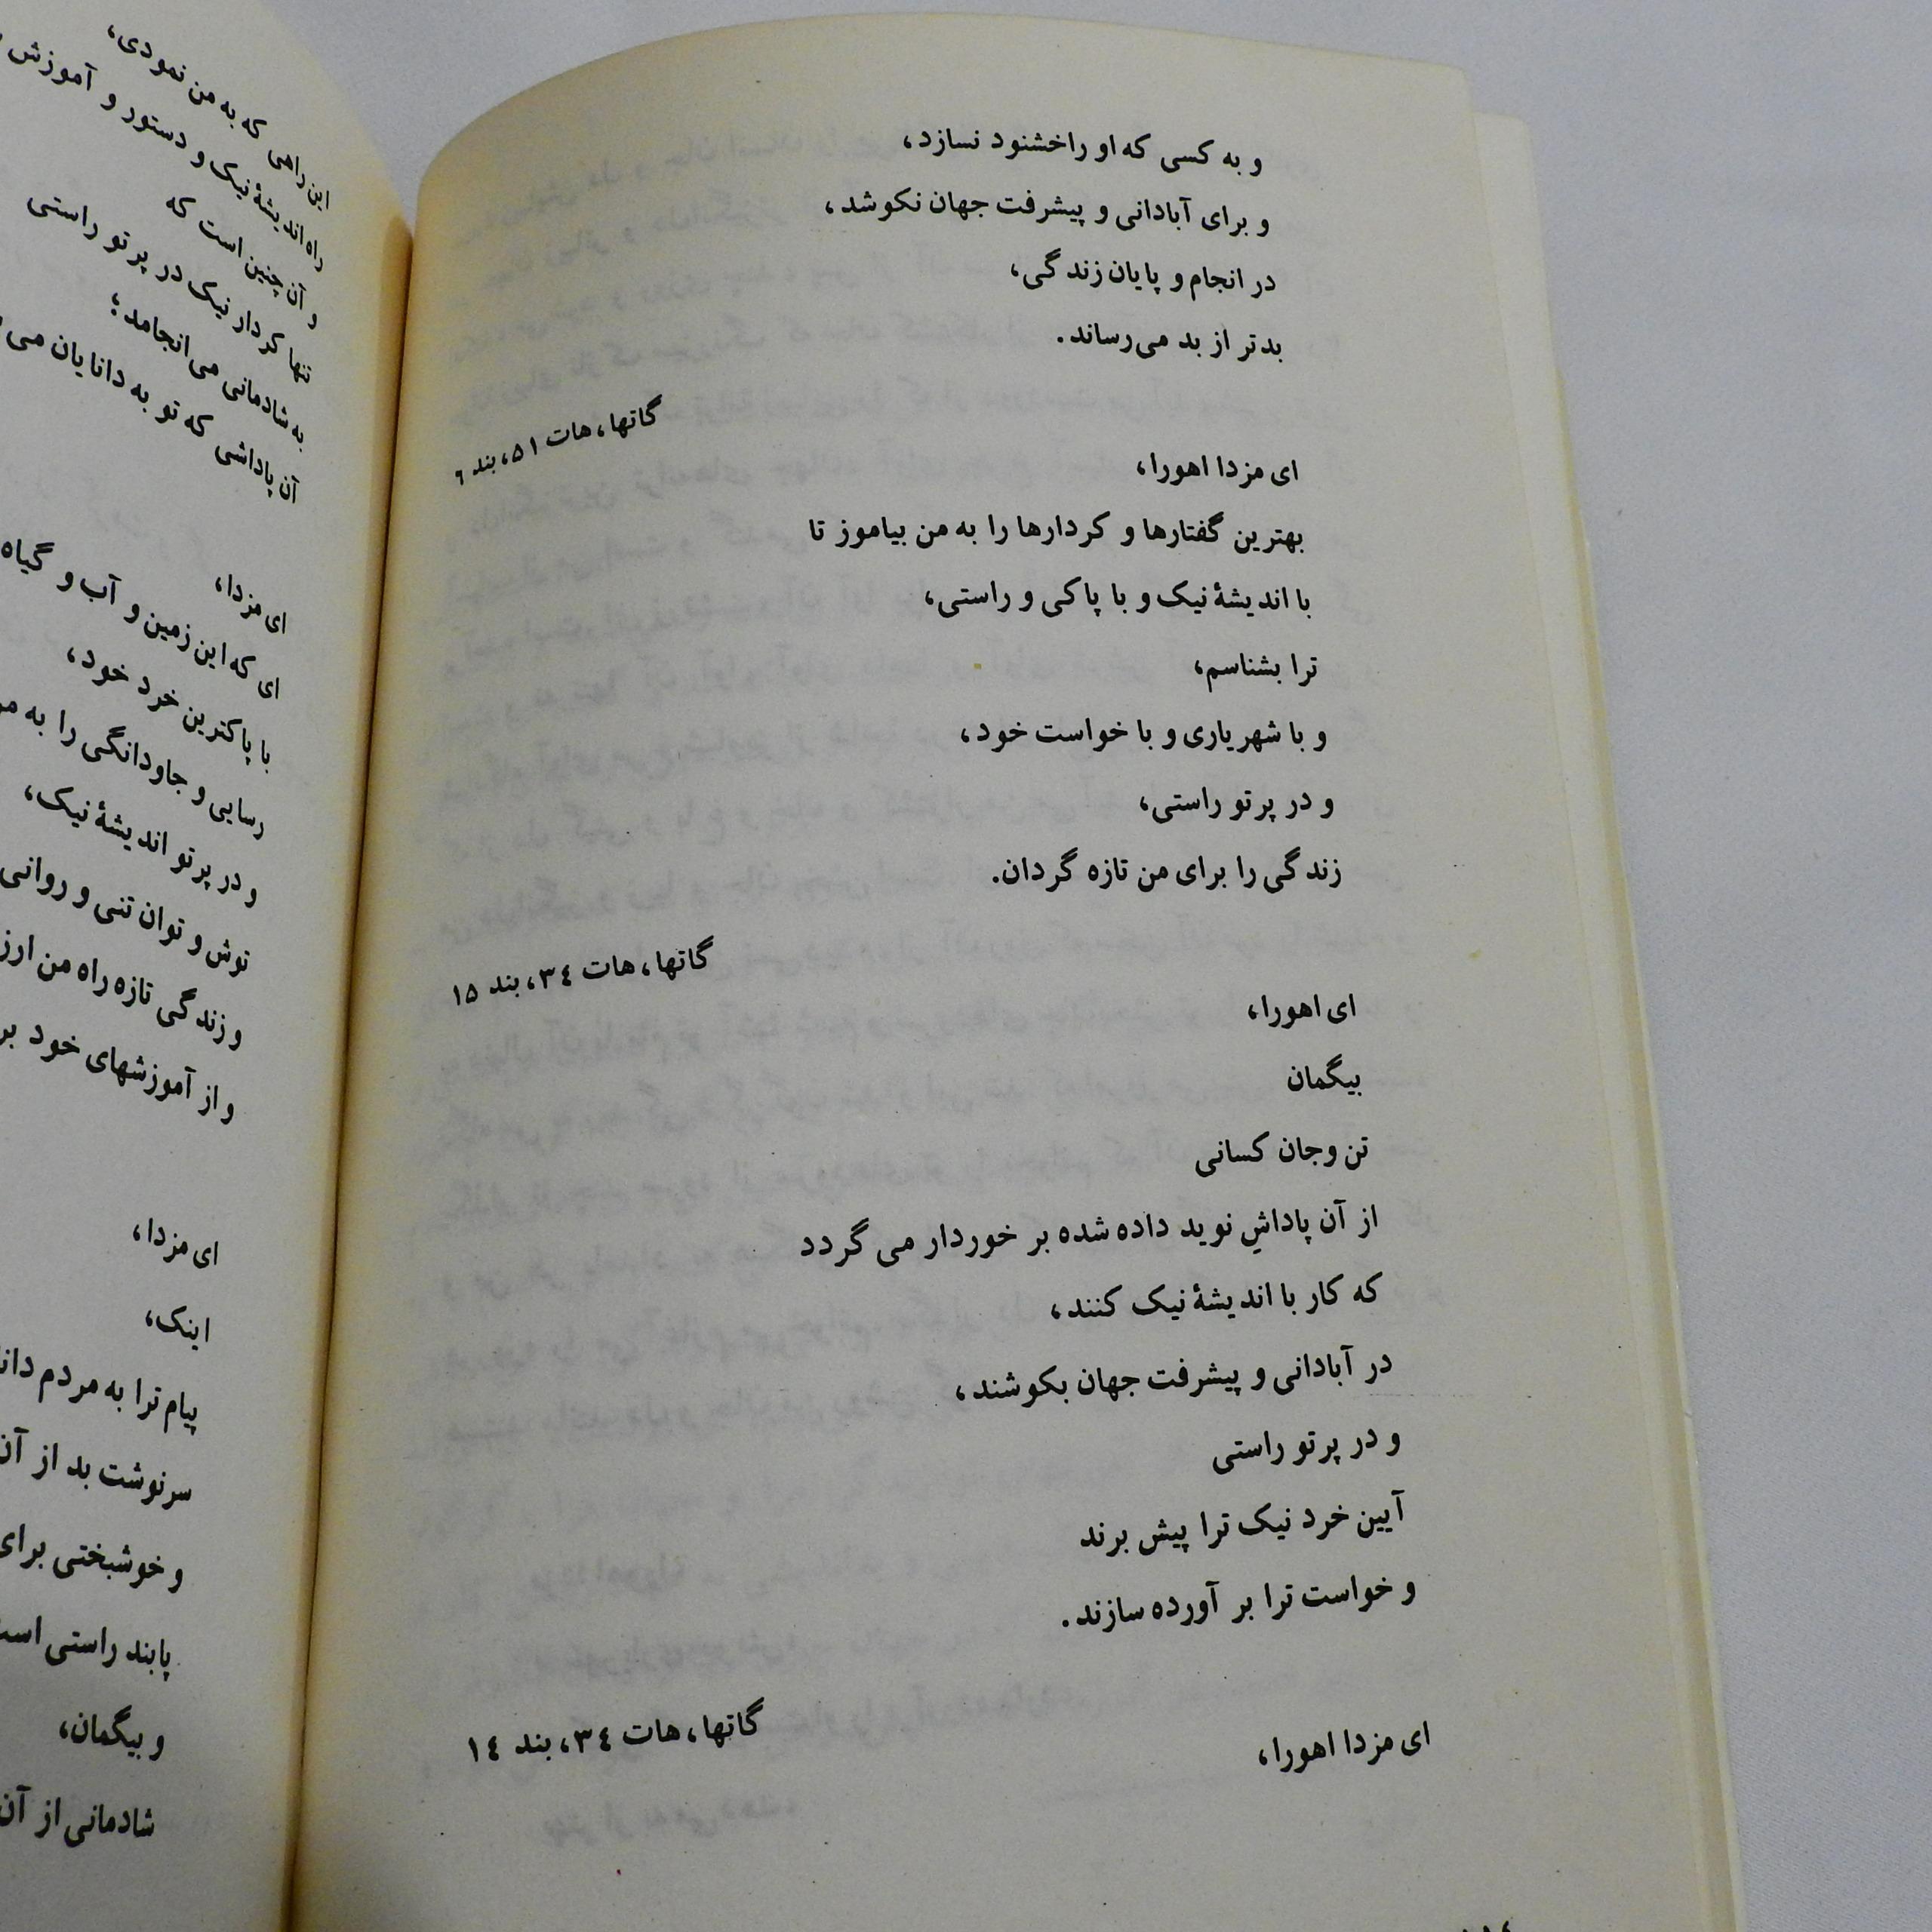 و به کسی که او را خشنود نسازد،
و برای آبادانی و پیشرفت جهان نکوشد،
در انجام و پایان زندگی،
بدتر از بد می‌رساند.
گاتها، هات ۵۱، بند ۶
ای مزدا اهورا،
بهترین گفتارها و کردارها را به من بیاموز تا
با اندیشهٔ نیک و با پاکی و راستی،
ترا بشناسم،
و با شهریاری و با خواست خود،
و در پرتو راستی،
زندگی را برای من تازه گردان.
گاتها، هات ۳۴، بند ۱۵
ای اهورا،
بیگمان
تن و جان کسانی
از آن پاداشِ نوید داده شده بر خوردار می گردد
که کار با اندیشهٔ نیک کنند،
در آبادانی و پیشرفت جهان بکوشند،
و در پرتو راستی
آیین خرد نیک ترا پیش برند
و خواست ترا بر آورده سازند.
گاتها، هات ۳۴، بند ۱۴
ای مزدا اهورا،
این راهی که به من نمودی،
راه اندیشهٔ نیک و دستور و آموزش
و آن چنین است که
تنها کردار نیک در پرتو راستی
به شادمانی می انجامد؛
آن پاداشی که تو به دانایان می
ای مزدا،
ای که این زمین و آب و گیاه
با پاکترین خرد خود،
رسایی و جاودانگی را به
و در پرتو اندیشهٔ نیک،
توش و توان تنی و روانی
و زندگی تازه راه من
و از آموزشهای خود
ای مزدا،
اینک،
پیام ترا به مردم
سرنوشت بد از آن
و خوشبختی برای
پابند راستی
و بیگمان،
شادمانی از آن